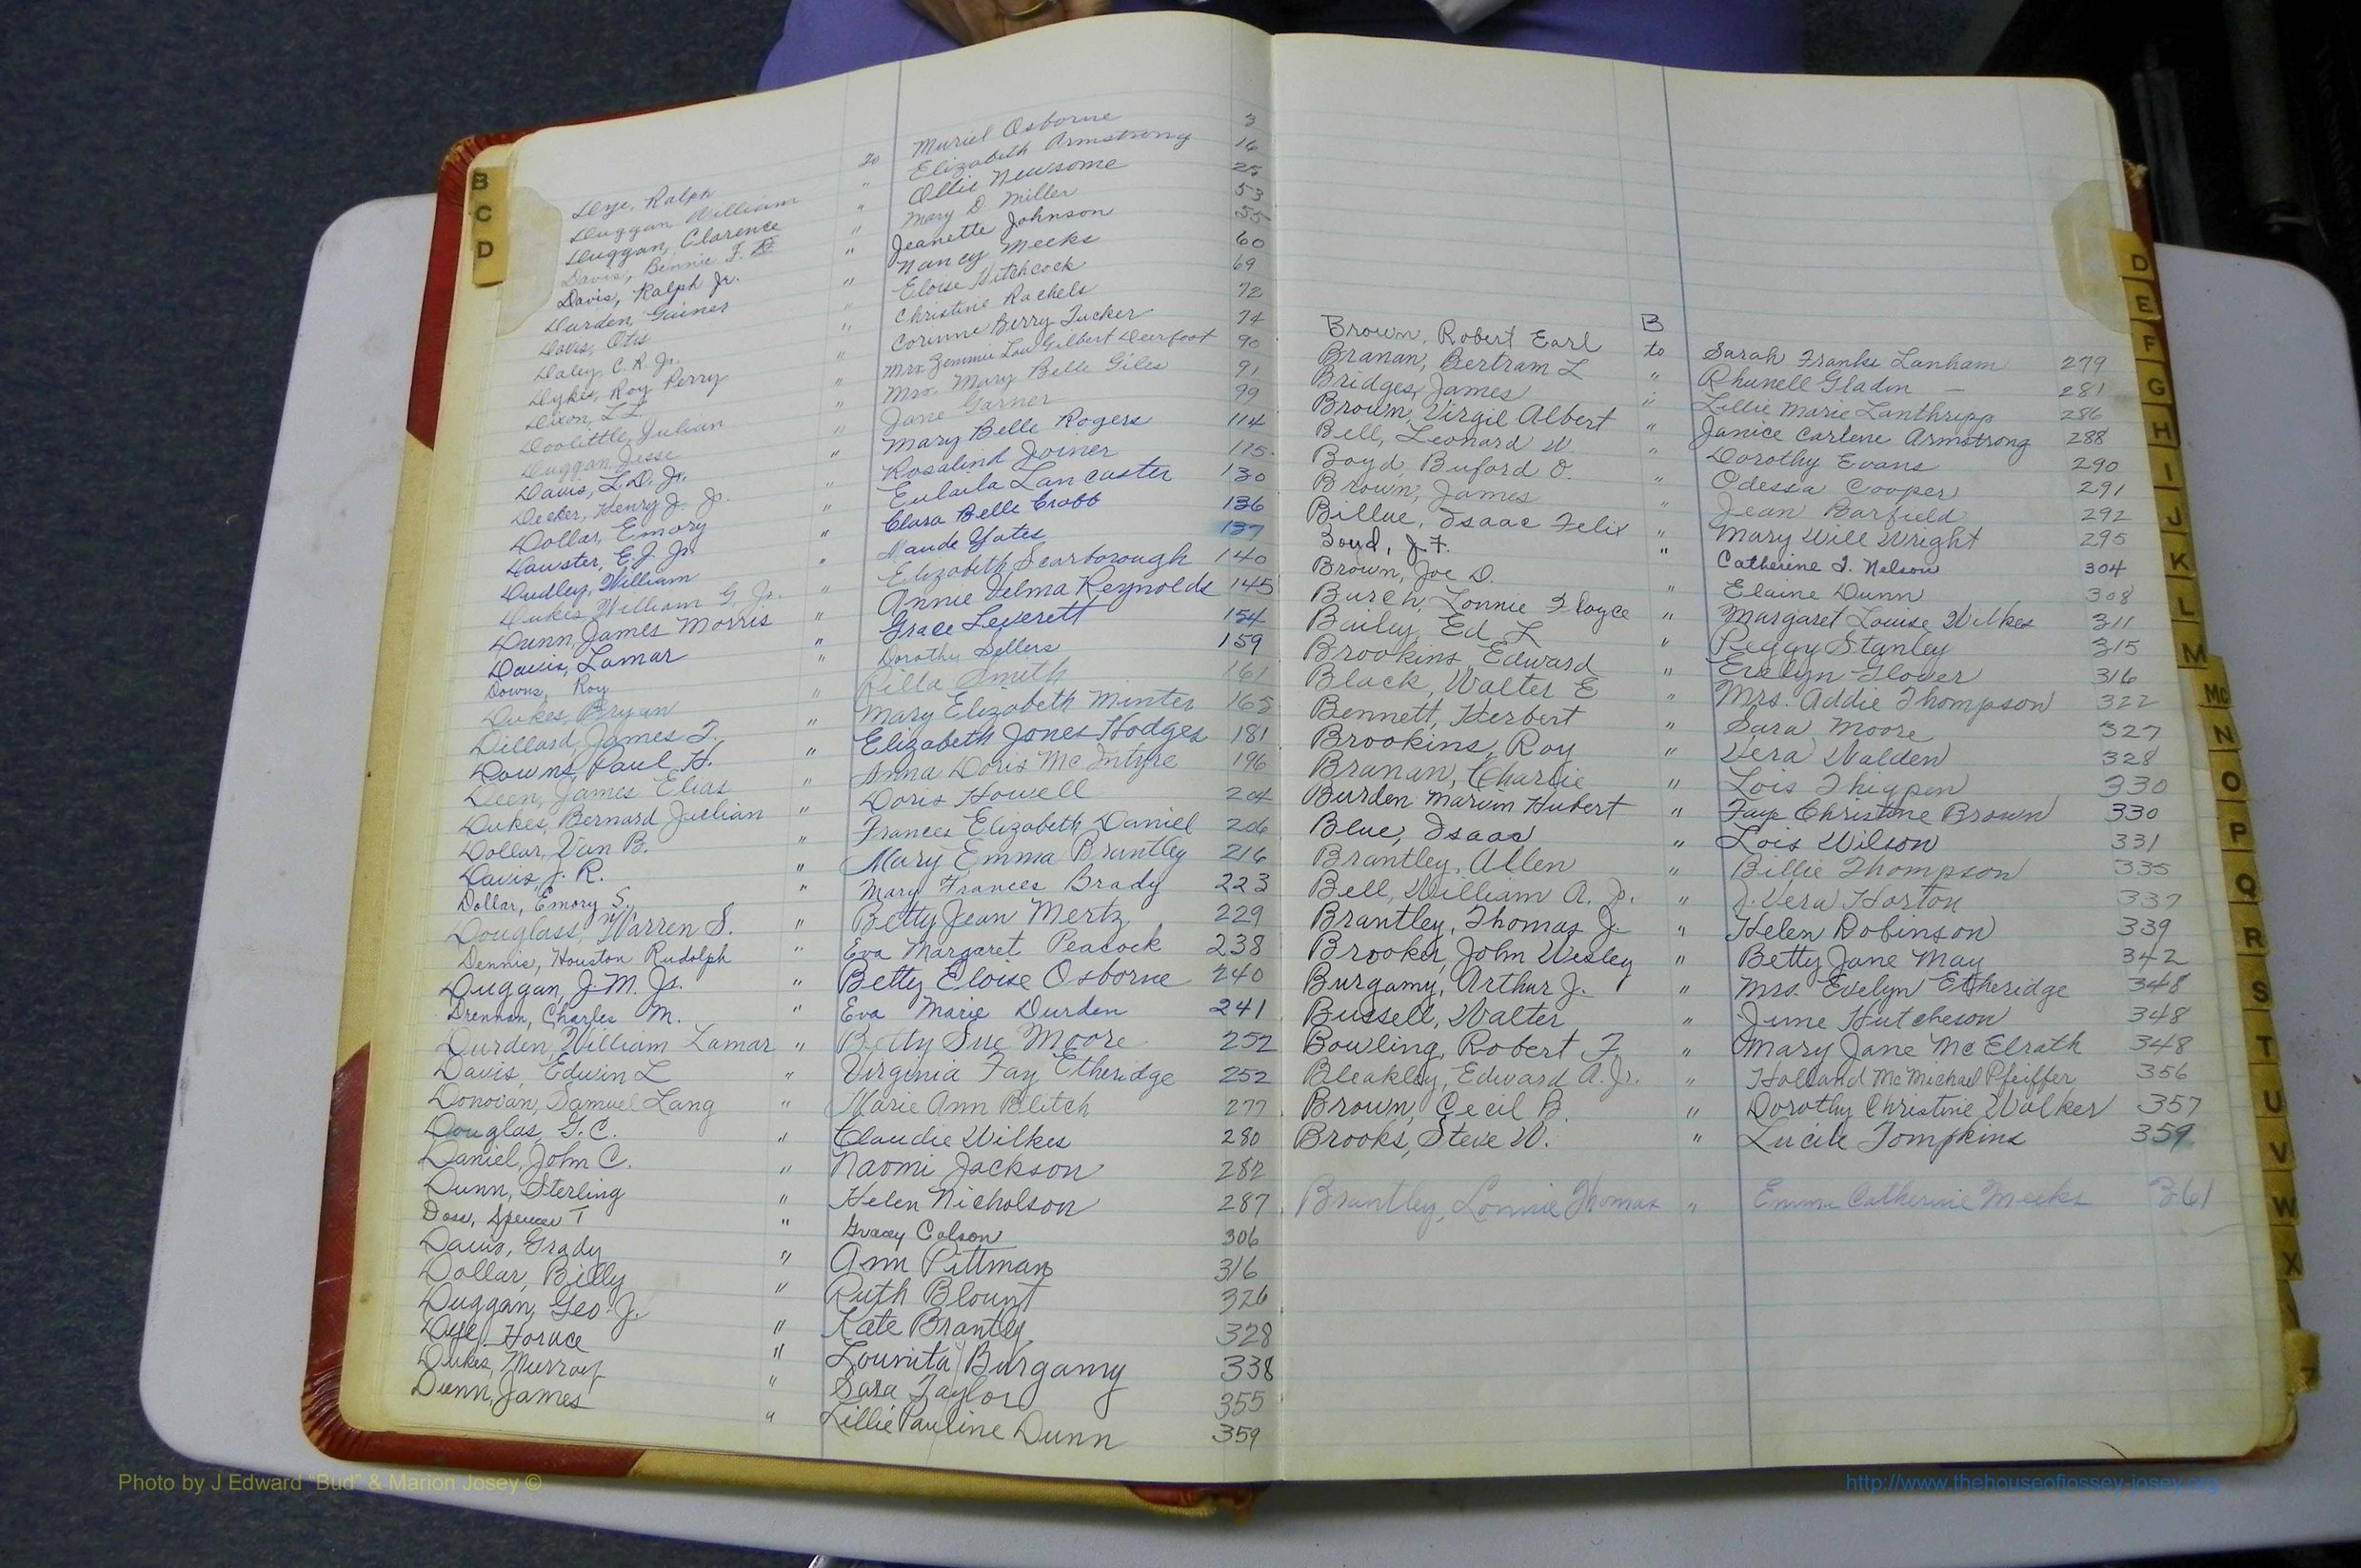 Dye, Ralph to Muriel Osborne 3
Duggan William " Elizabeth Armstrong 16
Duggan, Clarence " Ollie Newsome 25
Davis, Bennie F. " Mary D. Miller 53
Davis, Ralph Jr. " Jeanette Johnson 55
Durden, Gainer " Nancy Meeks 60
Davis, Otis " Eloise Hitchcock 69
Daley, C. R. Jr. " Christine Rachels 72
Dykes, Roy Perry " Corinne Berry Tucker 74
Dixon, L.L. " Mrs. Zemmie Lou Gilbert Deerfoot 90
Doolittle, Julian " Mrs. Mary Belle Giles 91
Duggan, Jesse " Jane Garner 99
Davis, L.D. Jr. " Mary Belle Rogers 114
Decker, Henry J. Jr. " Rosalind Joiner 115
Dollar, Emory " Eulaila Lancaster 130
E.J. Jr. " Clara Belle Crabb 136
Dudley, William " Maude Yates 137
Dukes, William G. Jr. " Elizabeth Scarborough 140
Dunn, James Morris " Annie Velma Reynolds 145
Davis, Lamar " Grace Leverett 154
Downs, Roy " Dorothy Sellers 159
Dukes, Bryan " Rilla Smith 161
Dillard, James T. " Mary Elizabeth Minter 165
Downs, Paul H. " Elizabeth Jones Hodges 181
Deen, James Elias " Anna Doris McIntyre 196
Dukes, Bernard Julian " Doris Howell 204
Dollar, Van B. " Frances Elizabeth Daniel 206
Davis, J. R. " Mary Emma Brantley 216
Dollar, Emory S. " Mary Frances Brady 223
Douglass, Warren S. " Betty Jean Mertz 229
Dennis, Houston Rudolph " Eva Margaret Peacock 238
Duggan, J.M. Jr. " Betty Eloise Osborne 240
Drennan, Charles M. " Eva Marie Durden 241
Durden, William Lamar " Betty Sue Moore 252
Davis, Edwin L " Virginia Fay Etheridge 252
Donovan, Samuel Lang " Marie Ann Blitch 277
Douglas, G.C. " Claudie Wilkes 280
Daniel, John C. " Naomi Jackson 282
Dunn, Sterling " Helen Nicholson 287
Dose, Spencer T " Gracey Colson 306
Davis, Grady " Ann Pittman 316
Dollar, Billy " Ruth Blount 326
Duggan, Geo. J. " Kate Brantley 328
Dye, Horace " Lounita Burgamy 338
Dukes, Murray " Sara Taylor 355
Dunn, James " Lillie Pauline Dunn 359
B
Brown, Robert Earl to Sarah Franks Lanham 279
Branan, Bertram L " Rhunell Gladin 281
Bridges, James " Lillie Marie Lanthripp 286
Brown, Virgil Albert " Janice Carlene Armstrong 288
Bell, Leonard W. " Dorothy Evans 290
Boyd, Buford O. " Odessa Cooper 291
Brown, James " Jean Barfield 292
Billue, Isaac Felix " Mary Will Wright 295
Boyd, J.F. " Catherine T. Nelson 304
Brown, Joe D. " Elaine Dunn 308
Burch, Lonnie Floyce " Margaret Louise Wilkes 311
Bailey, Ed L " Peggy Stanley 315
Brookins, Edward " Evelyn Glover 316
Black, Walter E " Mrs. Addie Thompson 322
Bennett, Herbert " Sara Moore 327
Brookins, Roy " Vera Walden 328
Branan, Charlie " Lois Thigpen 330
Burden Marvin Hubert " Faye Christine Brown 330
Blue, Isaac " Lois Wilson 331
Brantley, Allen " Billie Thompson 335
Bell, William A. Jr. " J. Vera Horton 337
Brantley, Thomas J. " Helen Robinson 339
Brooker, John Wesley " Betty Jane May 342
Burgamy, Arthur J. " Mrs. Evelyn Etheridge 348
Bussell, Walter " June Hutcheson 348
Bowling, Robert F. " Mary Jane McElrath 348
Bleakley, Edward A. Jr. " Holland McMichael Pfeiffer 356
Brown, Cecil B. " Dorothy Christine Walker 357
Brooks, Steve W. " Lucile Tompkins 359
Brantley, Lonnie Thomas " Emma Catherine Meeks 361
B
C
D
D
E
F
G
H
I
J
K
L
M
Mc
N
O
P
Q
R
S
T
U
V
W
X
Photo by J Edward "Bud" & Marion Josey ©
http://www.thehouseofjossey-josey.org